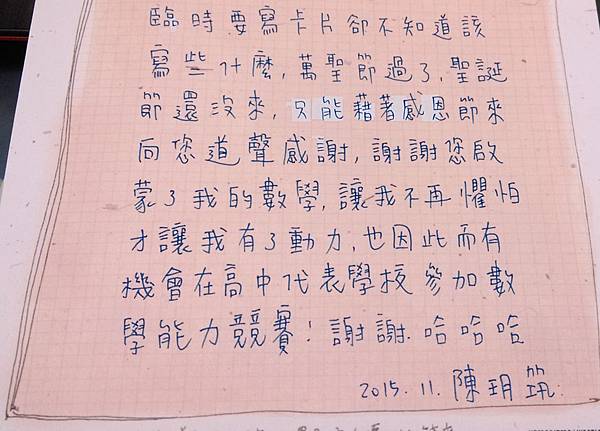 臨時要寫卡片卻不知道該
寫些什麼,萬聖節過了,聖誕
節還沒來,只能藉著感恩節來
向您道聲感謝,謝謝您啟
蒙了我的數學,讓我不再懼怕
才讓我有了動力,也因此而有
機會在高中代表學校參加數
學能力競賽!謝謝.哈哈哈
2015.11.陳玥筑